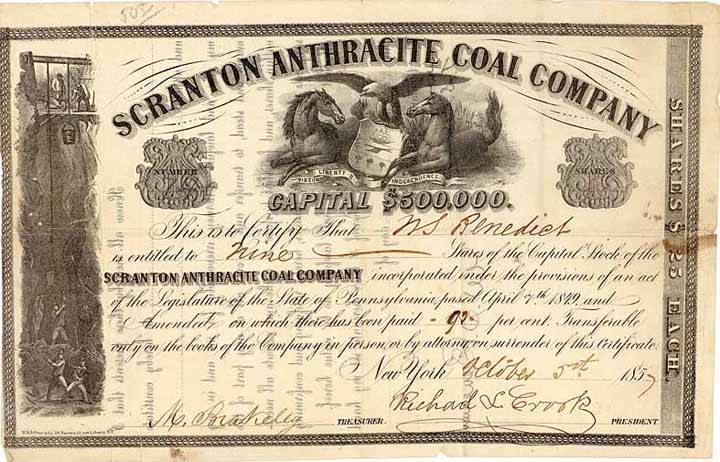 SCRANTON ANTHRACITE COAL COMPANY
NUMBER
SHARES
VIRTUE LIBERTY & INDEPENDENCE
CAPITAL $500,000.
This is to Certify That WS Benedict
is entitled to Nine Shares of the Capital Stock of the
SCRANTON ANTHRACITE COAL COMPANY incorporated under the provisions of an act
of the Legislature of the State of Pennsylvania, passed April 7th 1849, and
Amended, on which there has been paid - 92 - per cent. Transferable
only on the books of the Company in person, or by attorney on surrender of this Certificate.
New York October 5st 1857
M. Brakeley TREASURER. Richard S. Crook PRESIDENT
SHARES $25 EACH.